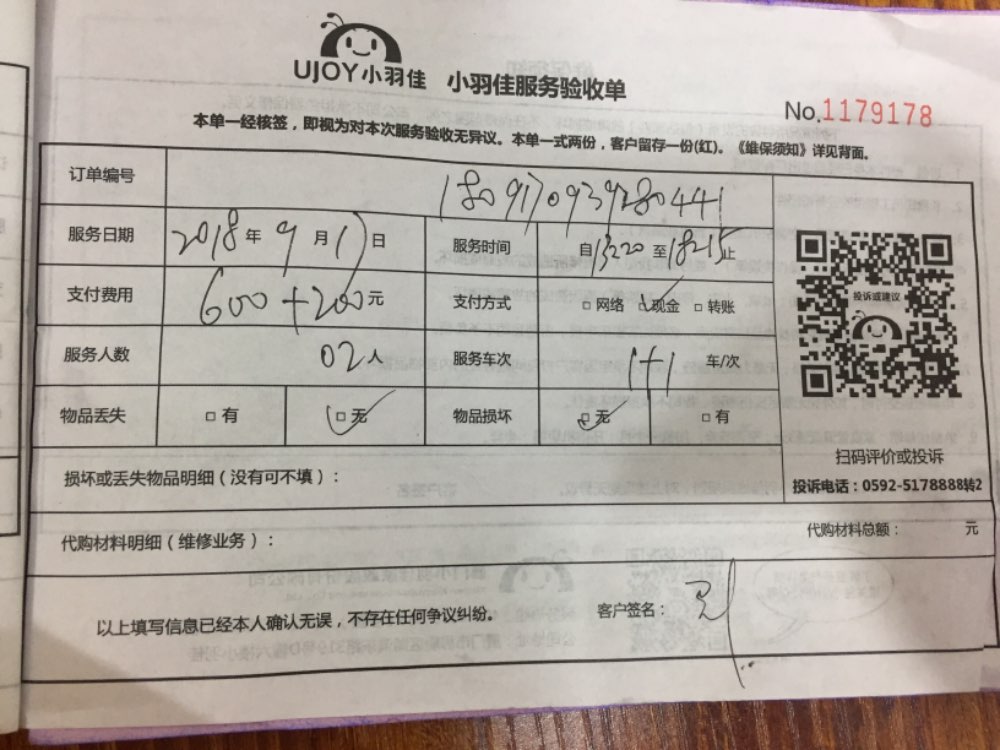 UJOY小羽佳 小羽佳服务验收单
No.1179178
本单一经核签，即视为对本次服务验收无异议。本单一式两份，客户留存一份(红)。《维保须知》详见背面。
订单编号 1809170939280441
服务日期 2018年9月17日 服务时间 自13:20至18:215止
支付费用 600+200元 支付方式 □网络 □现金 □转账
服务人数 02人 服务车次 1+1 车/次
物品丢失 □有 □无 物品损坏 □无 □有
投诉或建议
扫码评价或投诉
投诉电话：0592-5178888转2
损坏或丢失物品明细（没有可不填）：
代购材料明细（维修业务）： 代购材料总额： 元
以上填写信息已经本人确认无误，不存在任何争议纠纷。 客户签名：